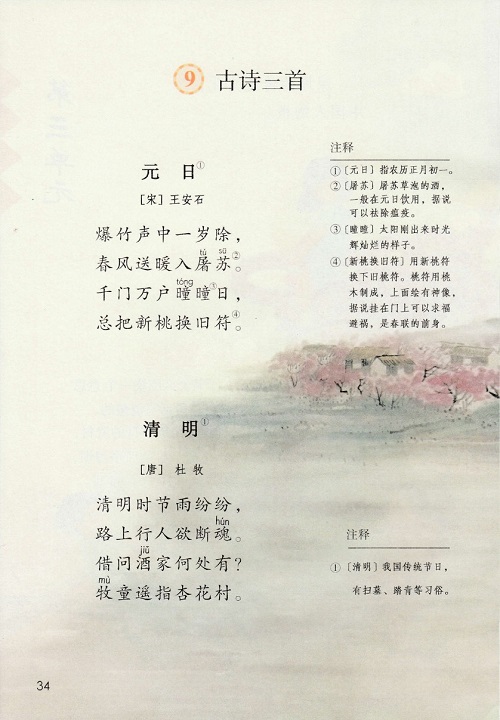 9 古诗三首
元 日①
[宋] 王安石
爆竹声中一岁除，
tú sū
春风送暖入屠苏②。
tóng
千门万户曈曈③日，
总把新桃换旧符④。
注释
①〔元日〕指农历正月初一。
②〔屠苏〕屠苏草泡的酒，
一般在元日饮用，据说
可以祛除瘟疫。
③〔曈曈〕太阳刚出来时光
辉灿烂的样子。
④〔新桃换旧符〕用新桃符
换下旧桃符。桃符用桃
木制成，上面绘有神像，
据说挂在门上可以求福
避祸，是春联的前身。
清 明①
[唐] 杜 牧
清明时节雨纷纷，
hún
路上行人欲断魂。
jiǔ
借问酒家何处有？
mù
牧童遥指杏花村。
注释
①〔清明〕我国传统节日，
有扫墓、踏青等习俗。
34